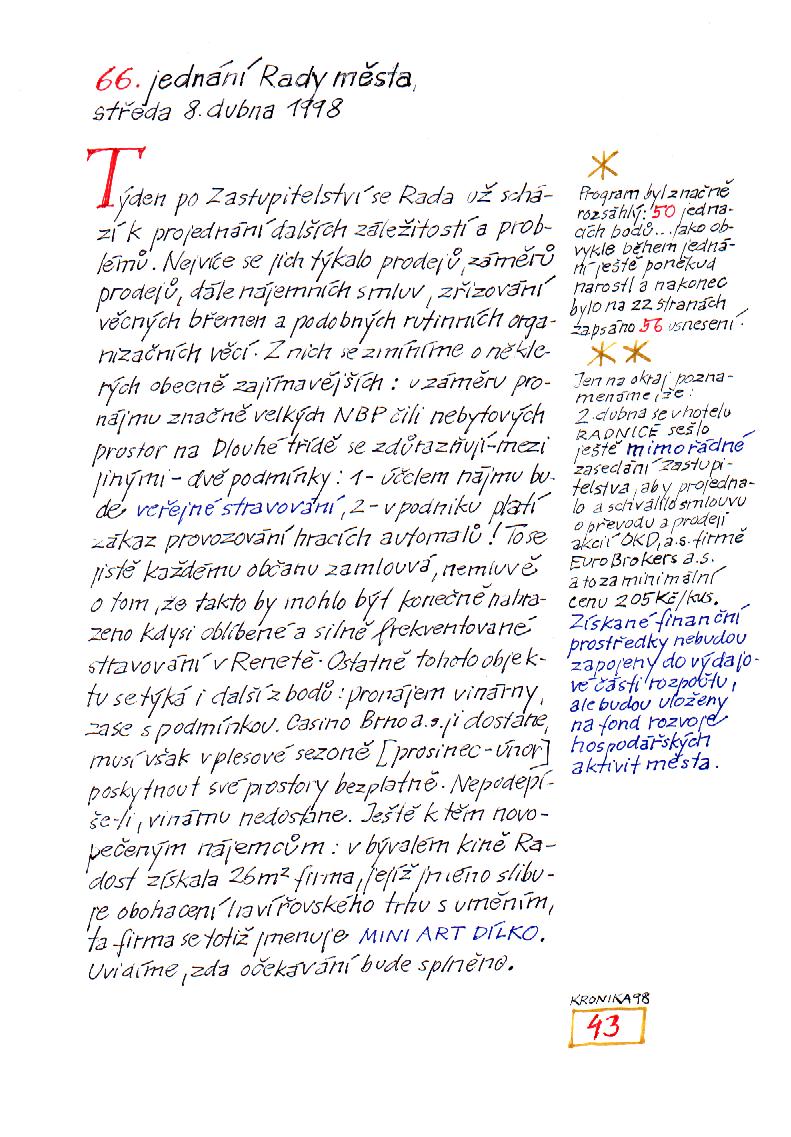 66. jednání Rady města,
středa 8. dubna 1998
Týden po Zastupitelství se Rada už schá-
zí k projednání dalších záležitostí a prob-
lémů. Nejvíce se jich týkalo prodejů, záměrů
prodejů, dále nájemních smluv, zřizování
věcných břemen a podobných rutinních orga-
nizačních věcí. Z nich se zmíníme o někte-
rých obecně zajímavějších: u záměru pro-
nájmu značně velkých NBP čili nebytových
prostor na Dlouhé třídě se zdůrazňují-mezi
jinými - dvě podmínky: 1- účelem nájmu bu-
de veřejné stravování, 2- v podniku platí
zákaz provozování hracích automatů! To se
jistě každému občanu zamlouvá, nemluvě
o tom, že takto by mohlo být konečně nahra-
zeno kdysi oblíbené a silně frekventované
stravování v Renetě. Ostatně tohoto objek-
tu se týká i další z bodů: pronájem vinárny,
zase s podmínkou. Casino Brno a.s. ji dostane,
musí však v plesové sezoně [prosinec-únor]
poskytnout své prostory bezplatně. Nepodepí-
še-li, vinárnu nedostane. Ještě k těm novo-
pečeným nájemcům: v bývalém kině Ra-
dost získala 26m² firma, jejíž jméno slibu-
je obohacení havířovského trhu s uměním,
ta firma se totiž jmenuje MINI ART DÍLKO.
Uvidíme, zda očekávání bude splněno.
Program byl značně
rozsáhlý: 50 jedna-
cích bodů... Jako ob-
vykle během jedná-
ní ještě poněkud
narostl a nakonec
bylo na 22 stranách
zapsáno 56 usnesení.
Jen na okraj pozna-
menáme, že:
2. dubna se v hotelu
RADNICE sešlo
ještě mimořádné
zasedání zastupi-
telstva, aby projedna-
lo a schválilo smlouvu
o převodu a prodeji
akcií OKD, a.s. firmě
EuroBrokers a.s.
a to za minimální
cenu 205Kč/kus.
Získané finanční
prostředky nebudou
zapojeny do výdajo-
vé části rozpočtu,
ale budou uloženy
na fond rozvoje
hospodářských
aktivit města.
KRONIKA98
43